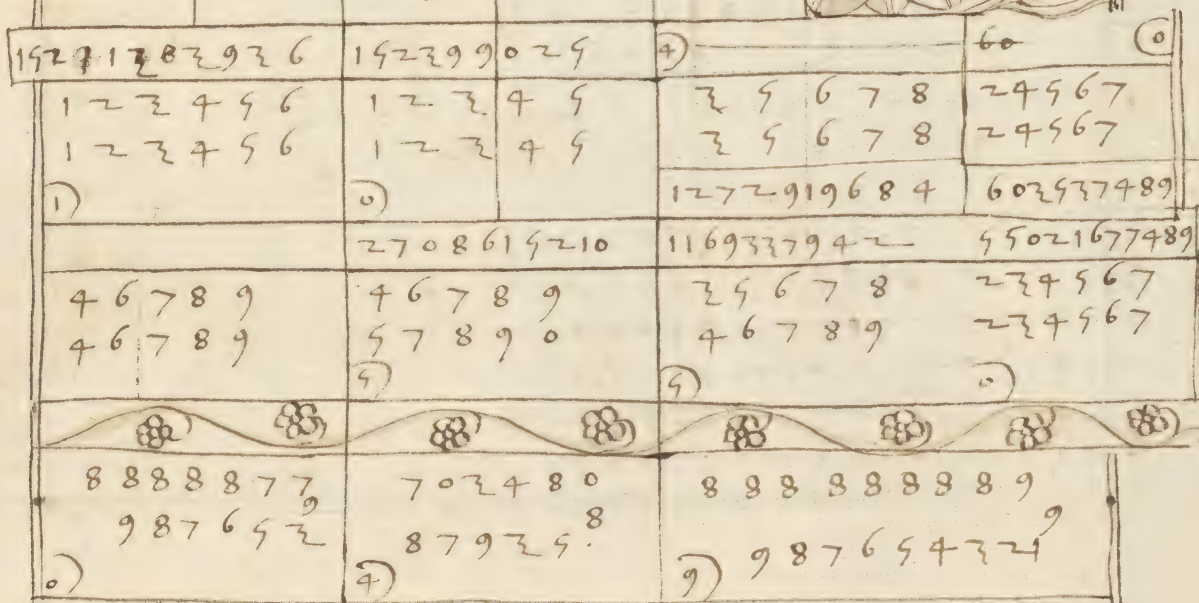 15241383936 152399025 4 60 0
123456 12345 35678 24567
123456 12345 35678 24567
1 0 1272919684 603537489
2708615210 1169337942 55021677489
46789 46789 35678 234567
46789 57890 46789 234567
5 5 0
8888877 703480 8888888889
9 8 9
987653 87935 987654321
0 4 9